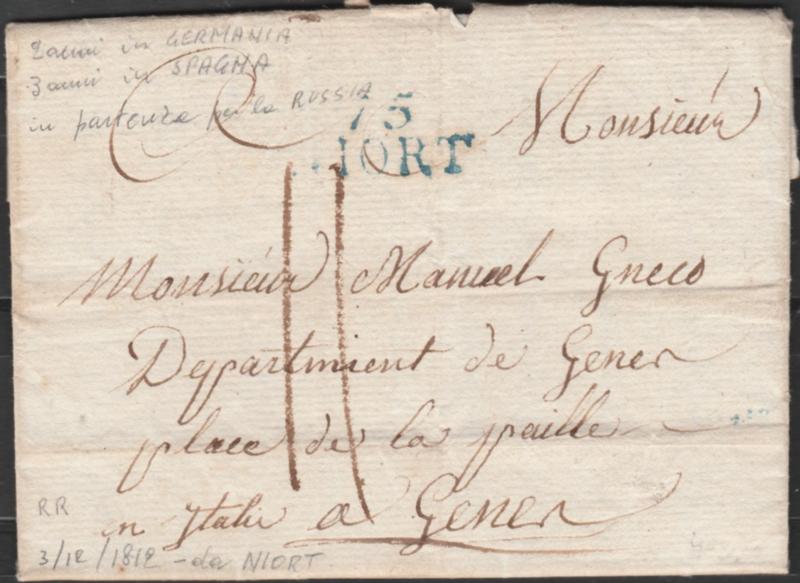 2 anni in GERMANIA
3 anni in SPAGNA
in partenza per la RUSSIA
75
NIORT
Monsieur
Monsieur Manuel Gneco
Departmient de Gener
place de la paille
en Italie a Gener
RR
3/12/1812 - da NIORT